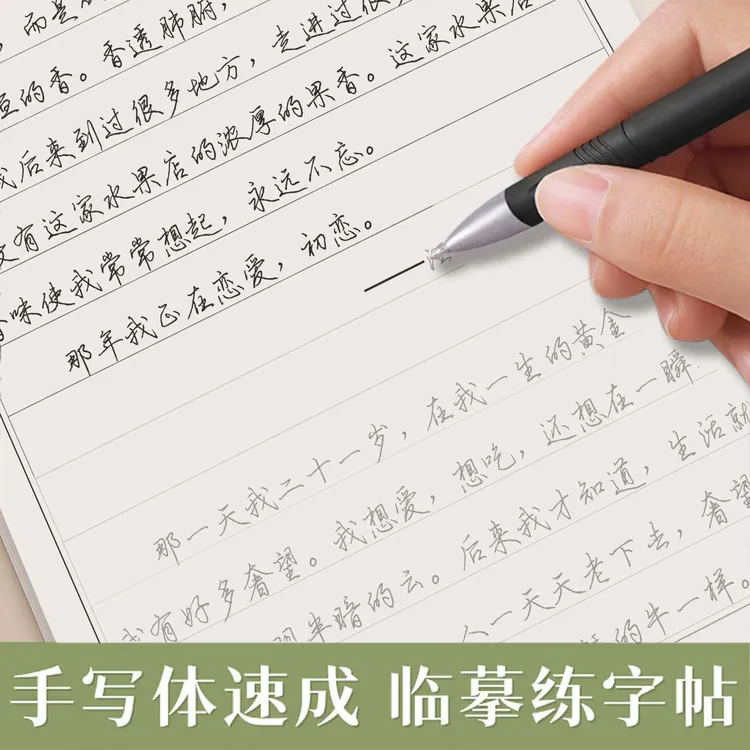 而是
的香。香透肺腑,
后来到过很多地方,走进过很
有这家水果店的浓厚的果香。这家水果店
味使我常常想起,永远不忘。
那年我正在恋爱,初恋。
那一天我二十一岁,在我一生的黄金
我有好多奢望。我想爱,想吃,还想在一瞬
半暗的云。后来我才知道,生活就
人一天天老下去,奢望
的牛一样。
手写体速成 临摹练字帖